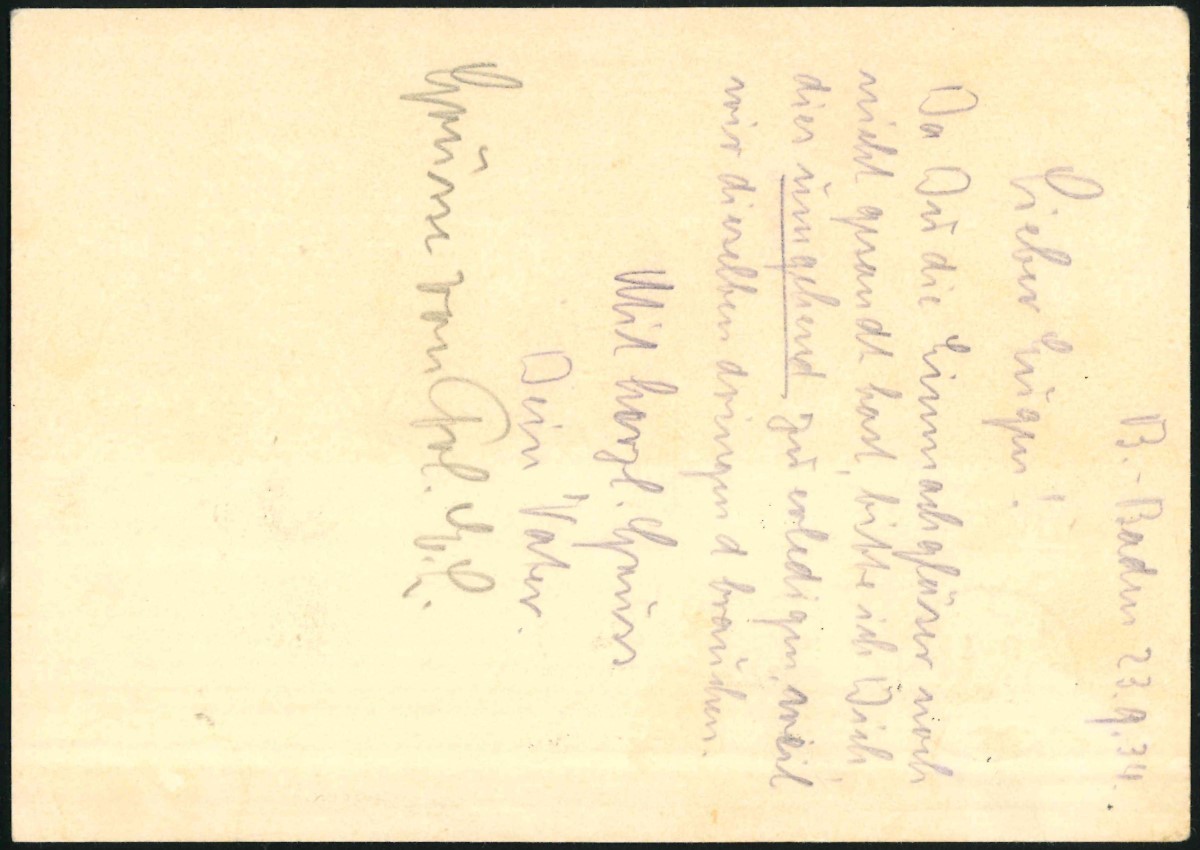 B.-Baden 23.9.34.
Lieber Eugen!
Da Du die Einmachgläser noch
nicht gesandt hast, bitte ich Dich
dies umgehend zu erledigen, weil
wir dieselben dringend brauchen.
Mit herzl. Gruss
Dein Vater.
Grüsse von